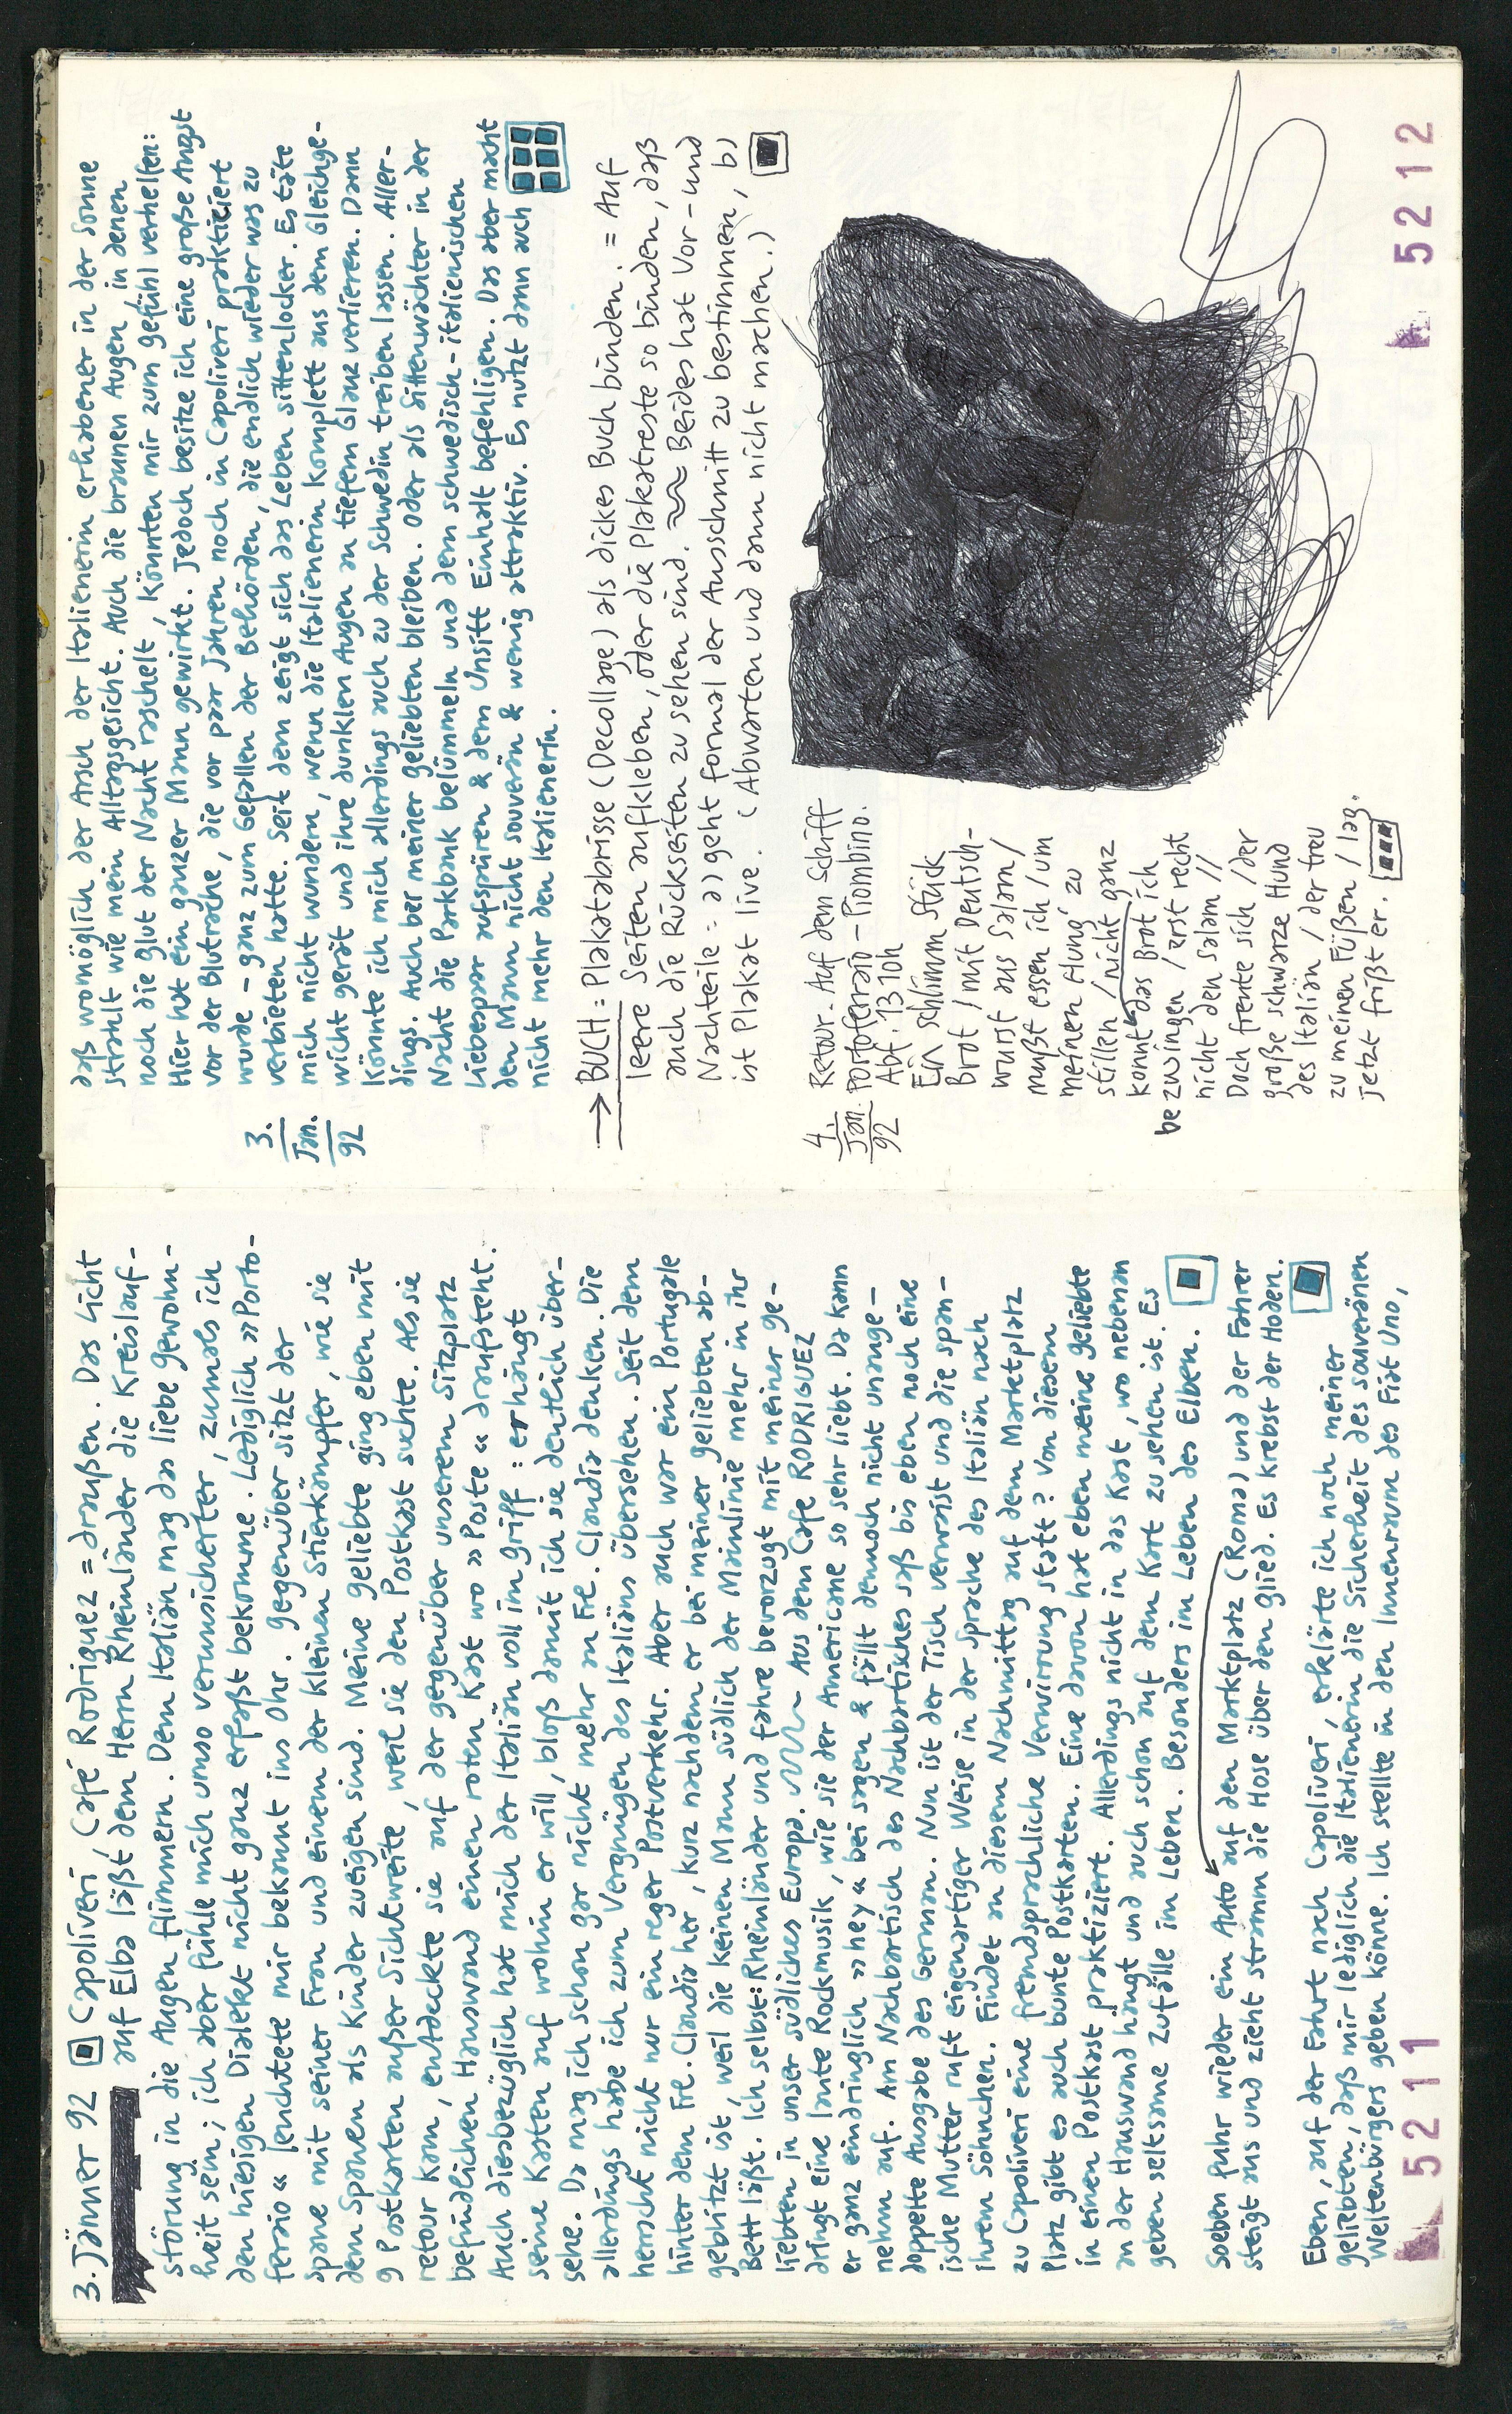 3. Jänner 92 Capoliveri, Café Rodriguez = draußen. Das Licht
auf Elba läßt dem Herrn Rheinländer die Kreislauf-
störung in die Augen flimmern. Dem Italiän mag das liebe Gewohn-
heit sein; ich aber fühle mich umso verunsicherter, zumals ich
den hiesigen Dialekt nicht ganz erfaßt bekomme. Lediglich »Porto-
ferraio« leuchtete mir bekannt ins Ohr. Gegenüber sitzt der
Spane mit seiner Frau und einem der kleinen Stierkämpfer, wie sie
dem Spanen als Kinder zueigen sind. Meine Geliebte ging eben mit
9 Postkarten außer Sichtweite, weil sie den Postkast suchte. Als sie
retour kam, entdeckte sie auf der gegenüber unserem Sitzplatz
befindlichen Hauswand einen roten Kast wo »Poste« draufsteht.
Auch diesbezüglich hat mich der Italiän voll im Griff: er hängt
seine Kasten auf wohin er will, bloß damit ich sie deutlich über-
sehe. Da mag ich schon gar nicht mehr an Fre. Claudia denken. Die
allerdings habe ich zum Vergnügen des Italiäns übersehen. Seit dem
herrscht nicht nur ein reger Postverkehr. Aber auch war ein Portugale
hinter dem Fre. Claudia her, kurz nachdem er bei meiner Geliebten ab-
geblitzt ist, weil die keinen Mann südlich der Mainlinie mehr in ihr
Bett läßt. Ich selbst: Rheinländer und fahre bevorzugt mit meiner Ge-
liebten in unser südliches Europa. Aus dem Cafe RODRIGUEZ
dringt eine laute Rockmusik, wie sie der Americane so sehr liebt. Da kann
er ganz eindringlich »hey« bei sagen & fällt dennoch nicht unange-
nehm auf. Am Nachbartisch des Nachbartisches saß bis eben noch eine
doppelte Ausgabe des German. Nun ist der Tisch verwaist und die span-
ische Mutter ruft eigenartiger Weise in der Sprache des Italiän nach
ihrem Söhnchen. Findet an diesem Nachmittag auf dem Marktplatz
zu Capoliveri eine fremdsprachliche Verwirrung statt? Von diesem
Platz gibt es auch bunte Postkarten. Eine davon hat eben meine Geliebte
in einen Postkast praktiziert. Allerdings nicht in das Kast, wo nebenan
an der Hauswand hängt und auch schon auf dem Kart zu sehen ist. Es
geben seltsame Zufälle im Leben. Besonders im Leben des Elben.
Soeben fuhr wieder ein Auto auf den Marktplatz (Roma) und der Fahrer
steigt aus und zieht stramm die Hose über den Glied. Es krebst der Hoden.
Eben, auf der Fahrt nach Capoliveri, erklärte ich noch meiner
Geliebten, daß mir lediglich die Italienerin die Sicherheit des souveränen
Weltenbürgers geben könne. Ich stellte in den Innenraum des Fiat Uno,
5211
daß womöglich der Arsch der Italienerin erhabener in der Sonne
strahlt wie mein Alltagsgesicht. Auch die braunen Augen, in denen
noch die Glut der Nacht raschelt, könnten mir zum Gefühl verhelfen:
Hier hat ein ganzer Mann gewirkt. Jedoch besitze ich eine große Angst
vor der Blutrache, die vor paar Jahren noch in Capoliveri praktiziert
wurde – ganz zum Gefallen der Behörden, die endlich wieder was zu
verbieten hatte. Seit dem zeigt sich das Leben sittenlocker. Es täte
mich nicht wundern, wenn die Italienerin komplett aus dem Gleichge-
wicht gerät und ihre dunklen Augen an tiefem Glanz verlieren. Dann
könnte ich mich allerdings auch zu der Schwedin treiben lassen. Aller-
dings. Auch bei meiner Geliebten bleiben. Oder als Sittenwächter in der
Nacht die Parkbank belümmeln und dem schwedisch-italienischen
Liebespaar aufspüren & dem Unsitt Einhalt befehligen. Das aber macht
den Mann nicht souverän & wenig attraktiv. Es nutzt dann auch
nicht mehr den Italienerin.
3.
Jan.
92
→ BUCH: Plakatabrisse (Decollage) als dickes Buch binden. = Auf
leere Seiten aufkleben, oder die Plakatreste so binden, daß
auch die Rückseiten zu sehen sind. Beides hat Vor- und
Nachteile = a) geht formal der Ausschnitt zu bestimmen, b)
ist Plakat live. (Abwarten und dann nicht machen.)
4.
Jan.
92
Retour. Auf dem Schiff
Portoferraio – Piombino.
Abf. 13 10h
Ein schlimm Stück
Brot / mit Deutsch-
wurst aus Salam /
mußt essen ich / um
meinen Hung' zu
stillen / nicht ganz
konnt' das Brot ich
bezwingen / erst recht
nicht den Salam //
Doch freute sich / der
große schwarze Hund
des Italiän / der treu
zu meinen Füßen / lag.
Jetzt frißt er.
5212